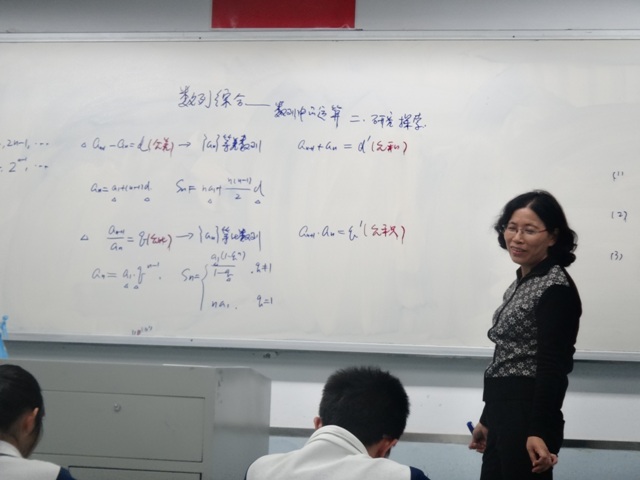 数列综合——数列中的运算 二、研究探学
,2n-1,…
△ aₙ₊₁-aₙ=d(公差)→{aₙ}等差数列 aₙ₊₁+aₙ=d'(公和)
=2ⁿ⁻¹,…
aₙ=a₁+(n-1)d Sₙ=na₁+n(n-1)/2 d
△ aₙ₊₁/aₙ=q(公比)→{aₙ}等比数列 aₙ₊₁·aₙ=q'(公积)
aₙ=a₁·qⁿ⁻¹ Sₙ={a₁(1-qⁿ)/1-q ,q≠1
na₁. q=1
(1)
(2)
(3)